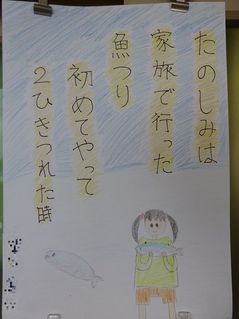 たのしみは
家旅で行った
魚つり
初めてやって
2ひきつれた時